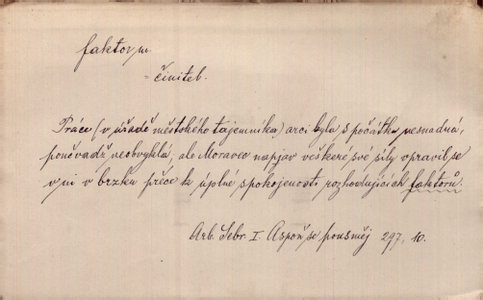 faktor, m.
= činitel.
Práce (v úřadě městského tajemníka) arci byla s počátku nesnadná,
poněvadž neobvyklá, ale Moravec napjav veškeré své síly vpravil se
v ni v brzku přece k úplné spokojenosti rozhodujících faktorů.
Arb. Sebr. I. Aspoň se pousměj 297, 10.